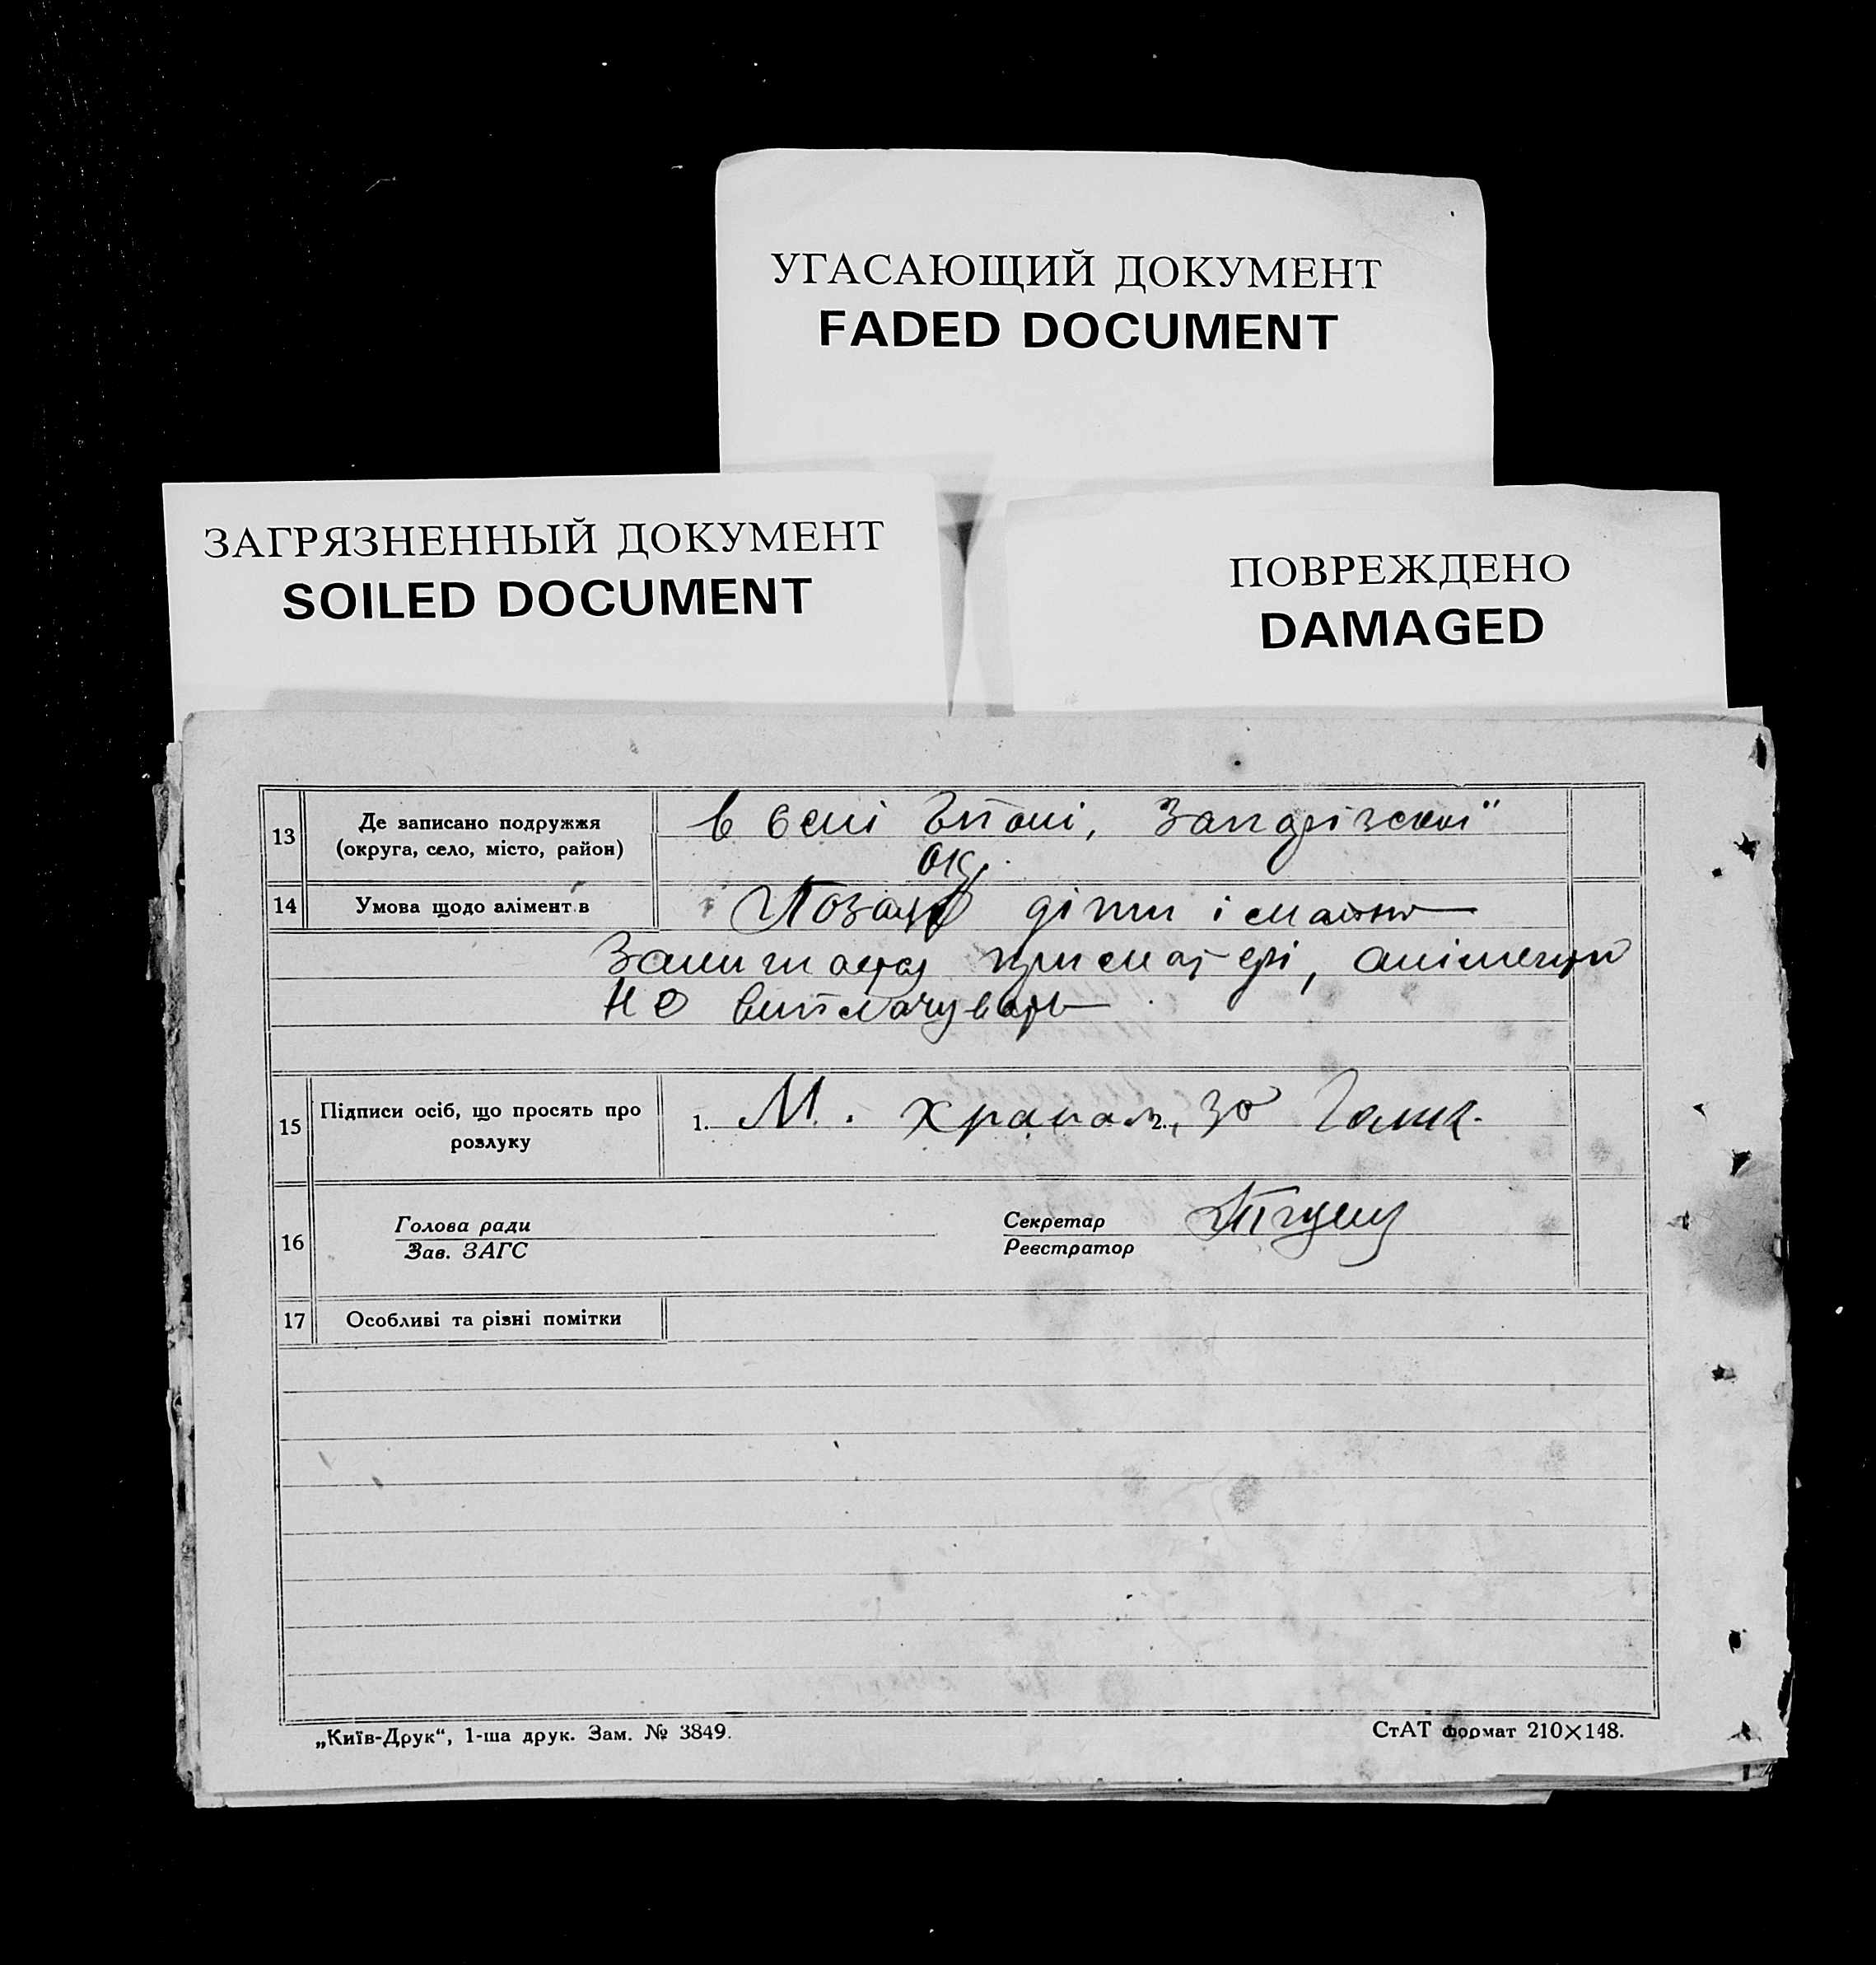 УГАСАЮЩИЙ ДОКУМЕНТ
FADED DOCUMENT
ЗАГРЯЗНЕННЫЙ ДОКУМЕНТ
SOILED DOCUMENT
ПОВРЕЖДЕНО
DAMAGED
13
Де записано подружжя
(округа, село, місто, район)
в селі
ок.
14
Умова щодо алімент в
діти і майно
при матері, аліменти
не виплачувать
15
Підписи осіб, що просять про
розлуку
1. М. 2. за
16
Голова ради
Зав. ЗАГС
Секретар
Реєстратор
17
Особливі та різні помітки
„Київ-Друк“, 1-ша друк. Зам. № 3849.
СтАТ формат 210×148.